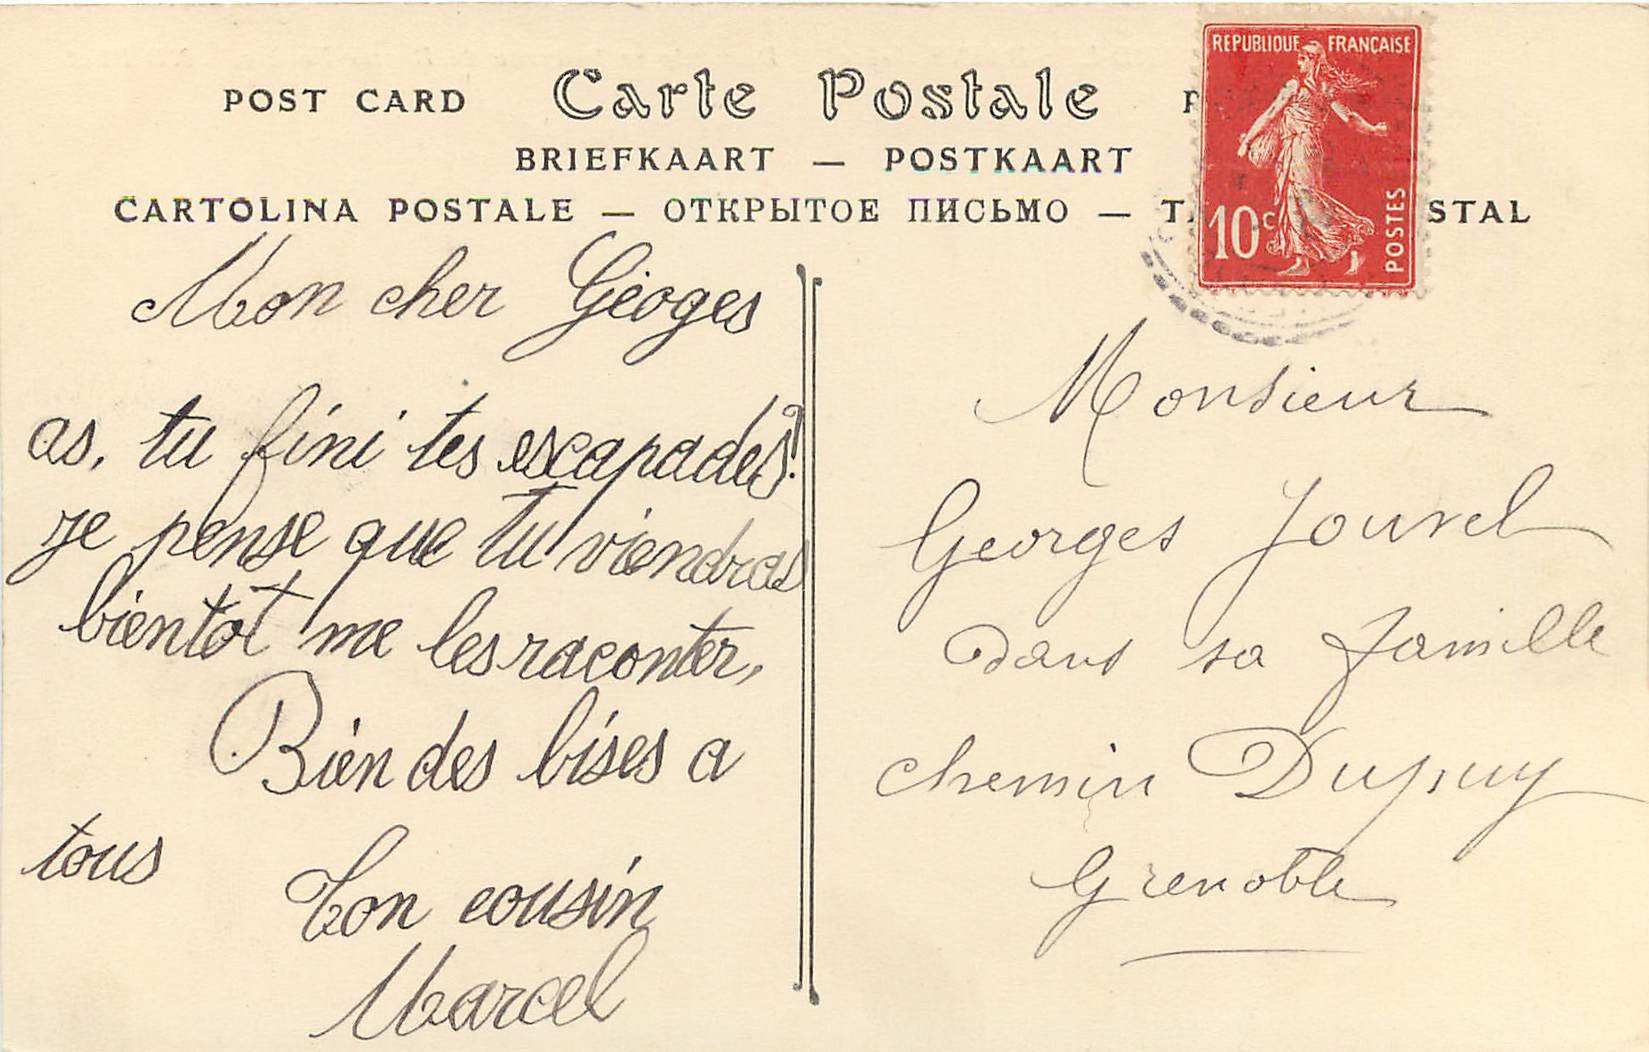 POST CARD Carte Postale P
BRIEFKAART — POSTKAART
CARTOLINA POSTALE — ОТКРЫТОЕ ПИСЬМО — T STAL
REPUBLIQUE FRANÇAISE
10c
POSTES
Mon cher Géoges
as, tu fini tes escapades?
je pense que tu viendras
bientot me les raconter,
Bien des bises a
tous
Ton cousin
Marcel
Monsieur
Georges Jouvel
dans sa famille
chemin Dupuy
Grenoble